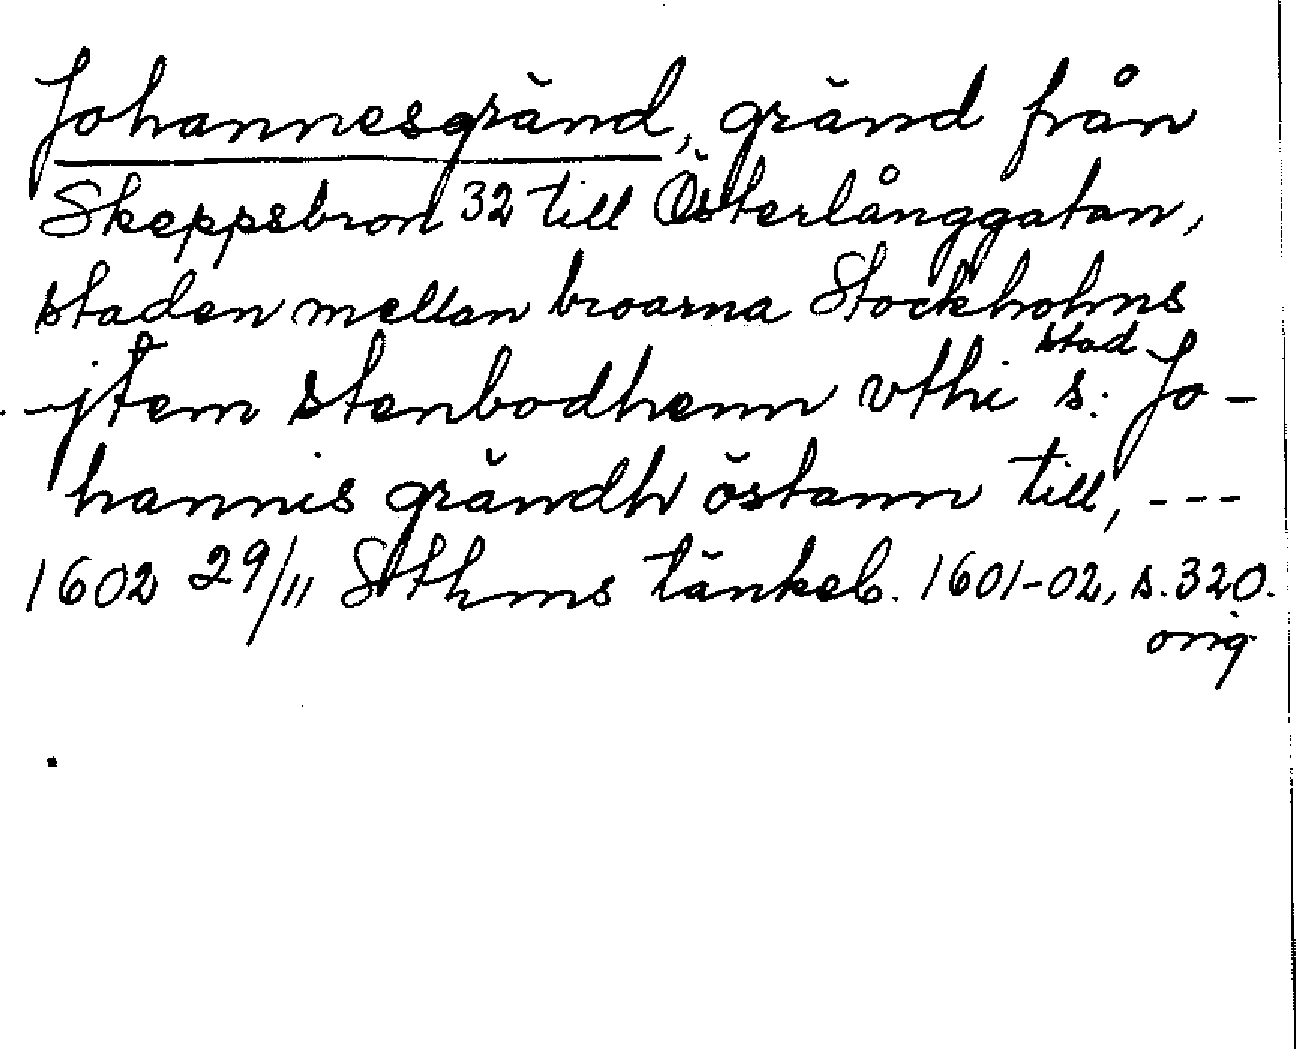 Johannesgränd, gränd från
Skeppsbron 32 till Österlånggatan,
staden mellan broarna Stockholms
stad
- jtem stenbodhenn vthi s: Jo-
hannis grändh östann till, ---
1602 29/11 Sthms tänkeb. 1601-02, s. 320.
orig